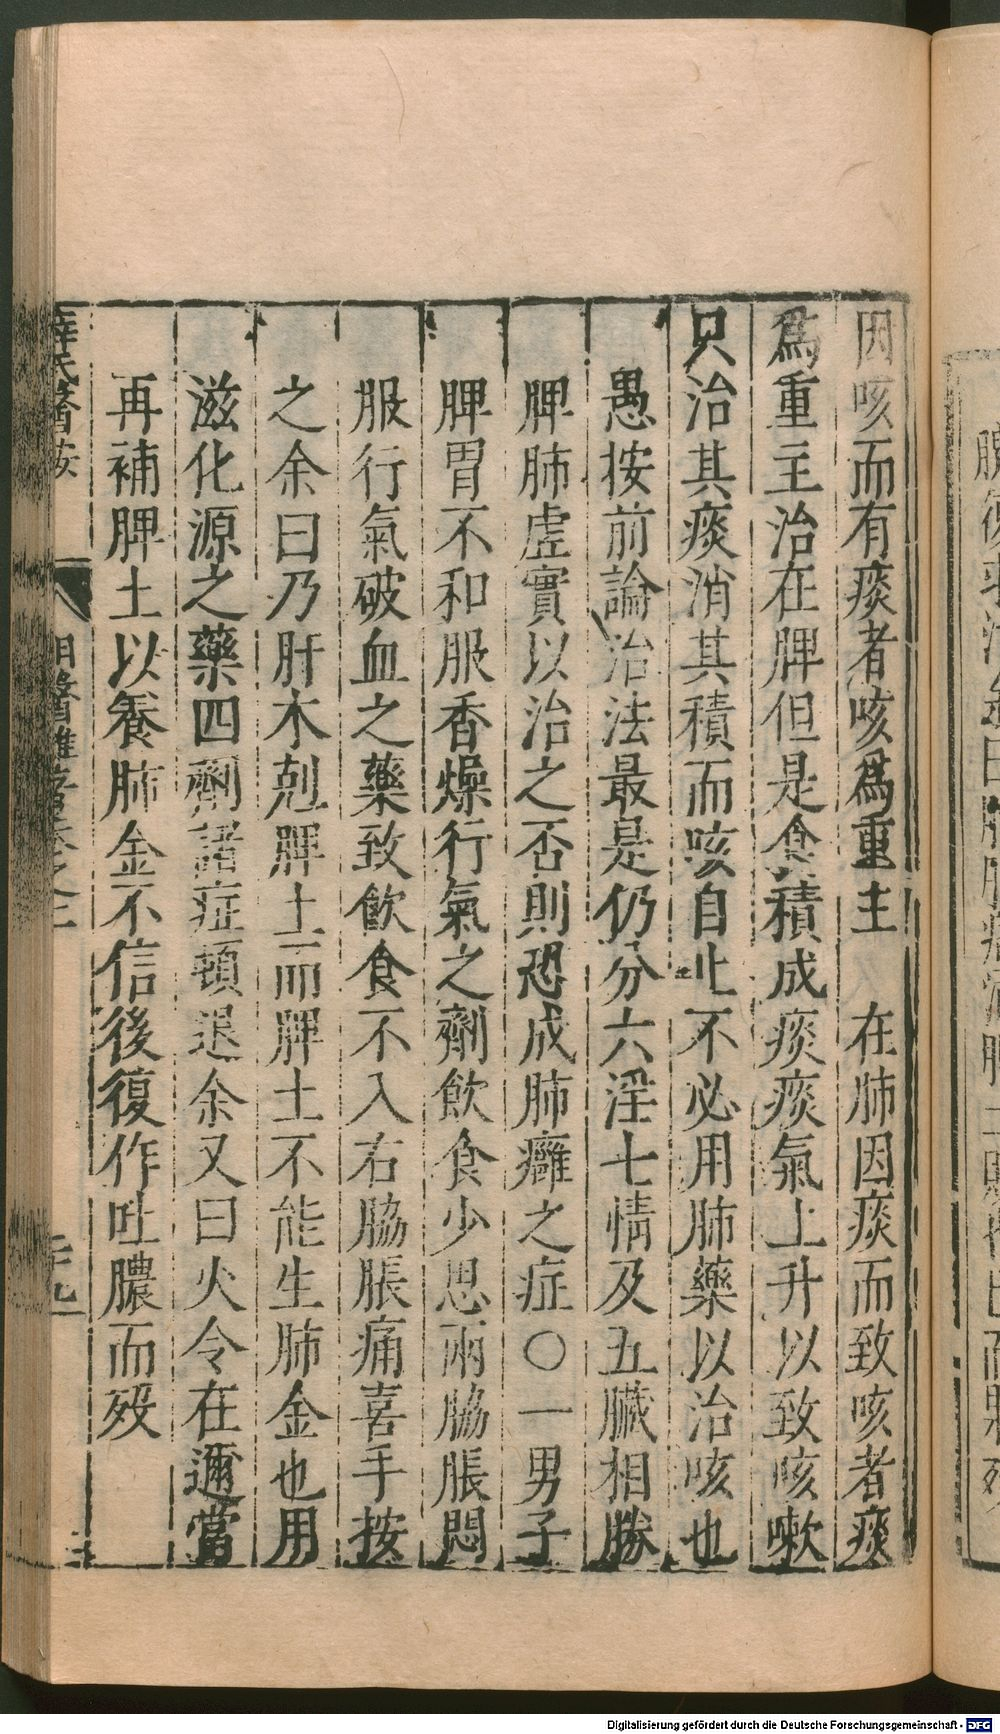 因咳而有痰者咳爲重主　在肺因痰而致咳者痰
爲重主治在脾但是食積成痰痰氣上升以致咳嗽
只治其痰消其積而咳自止不必用肺藥以治咳也
愚按前論治法最是仍分六淫七情及五臟相勝
脾肺虛實以治之否則恐成肺癰之症〇一男子
脾胃不和服香燥行氣之劑飲食少思兩脇脹悶
服行氣破血之藥致飲食不入右脇脹痛喜手按
之余曰乃肝木剋脾土而脾土不能生肺金也用
滋化源之藥四劑諸症頓退余又曰火令在邇當
再補脾土以養肺金不信後復作吐膿而歿
薛氏醫按
明醫雜著卷之二
Digitalisierung gefördert durch die Deutsche Forschungsgemeinschaft - DFG